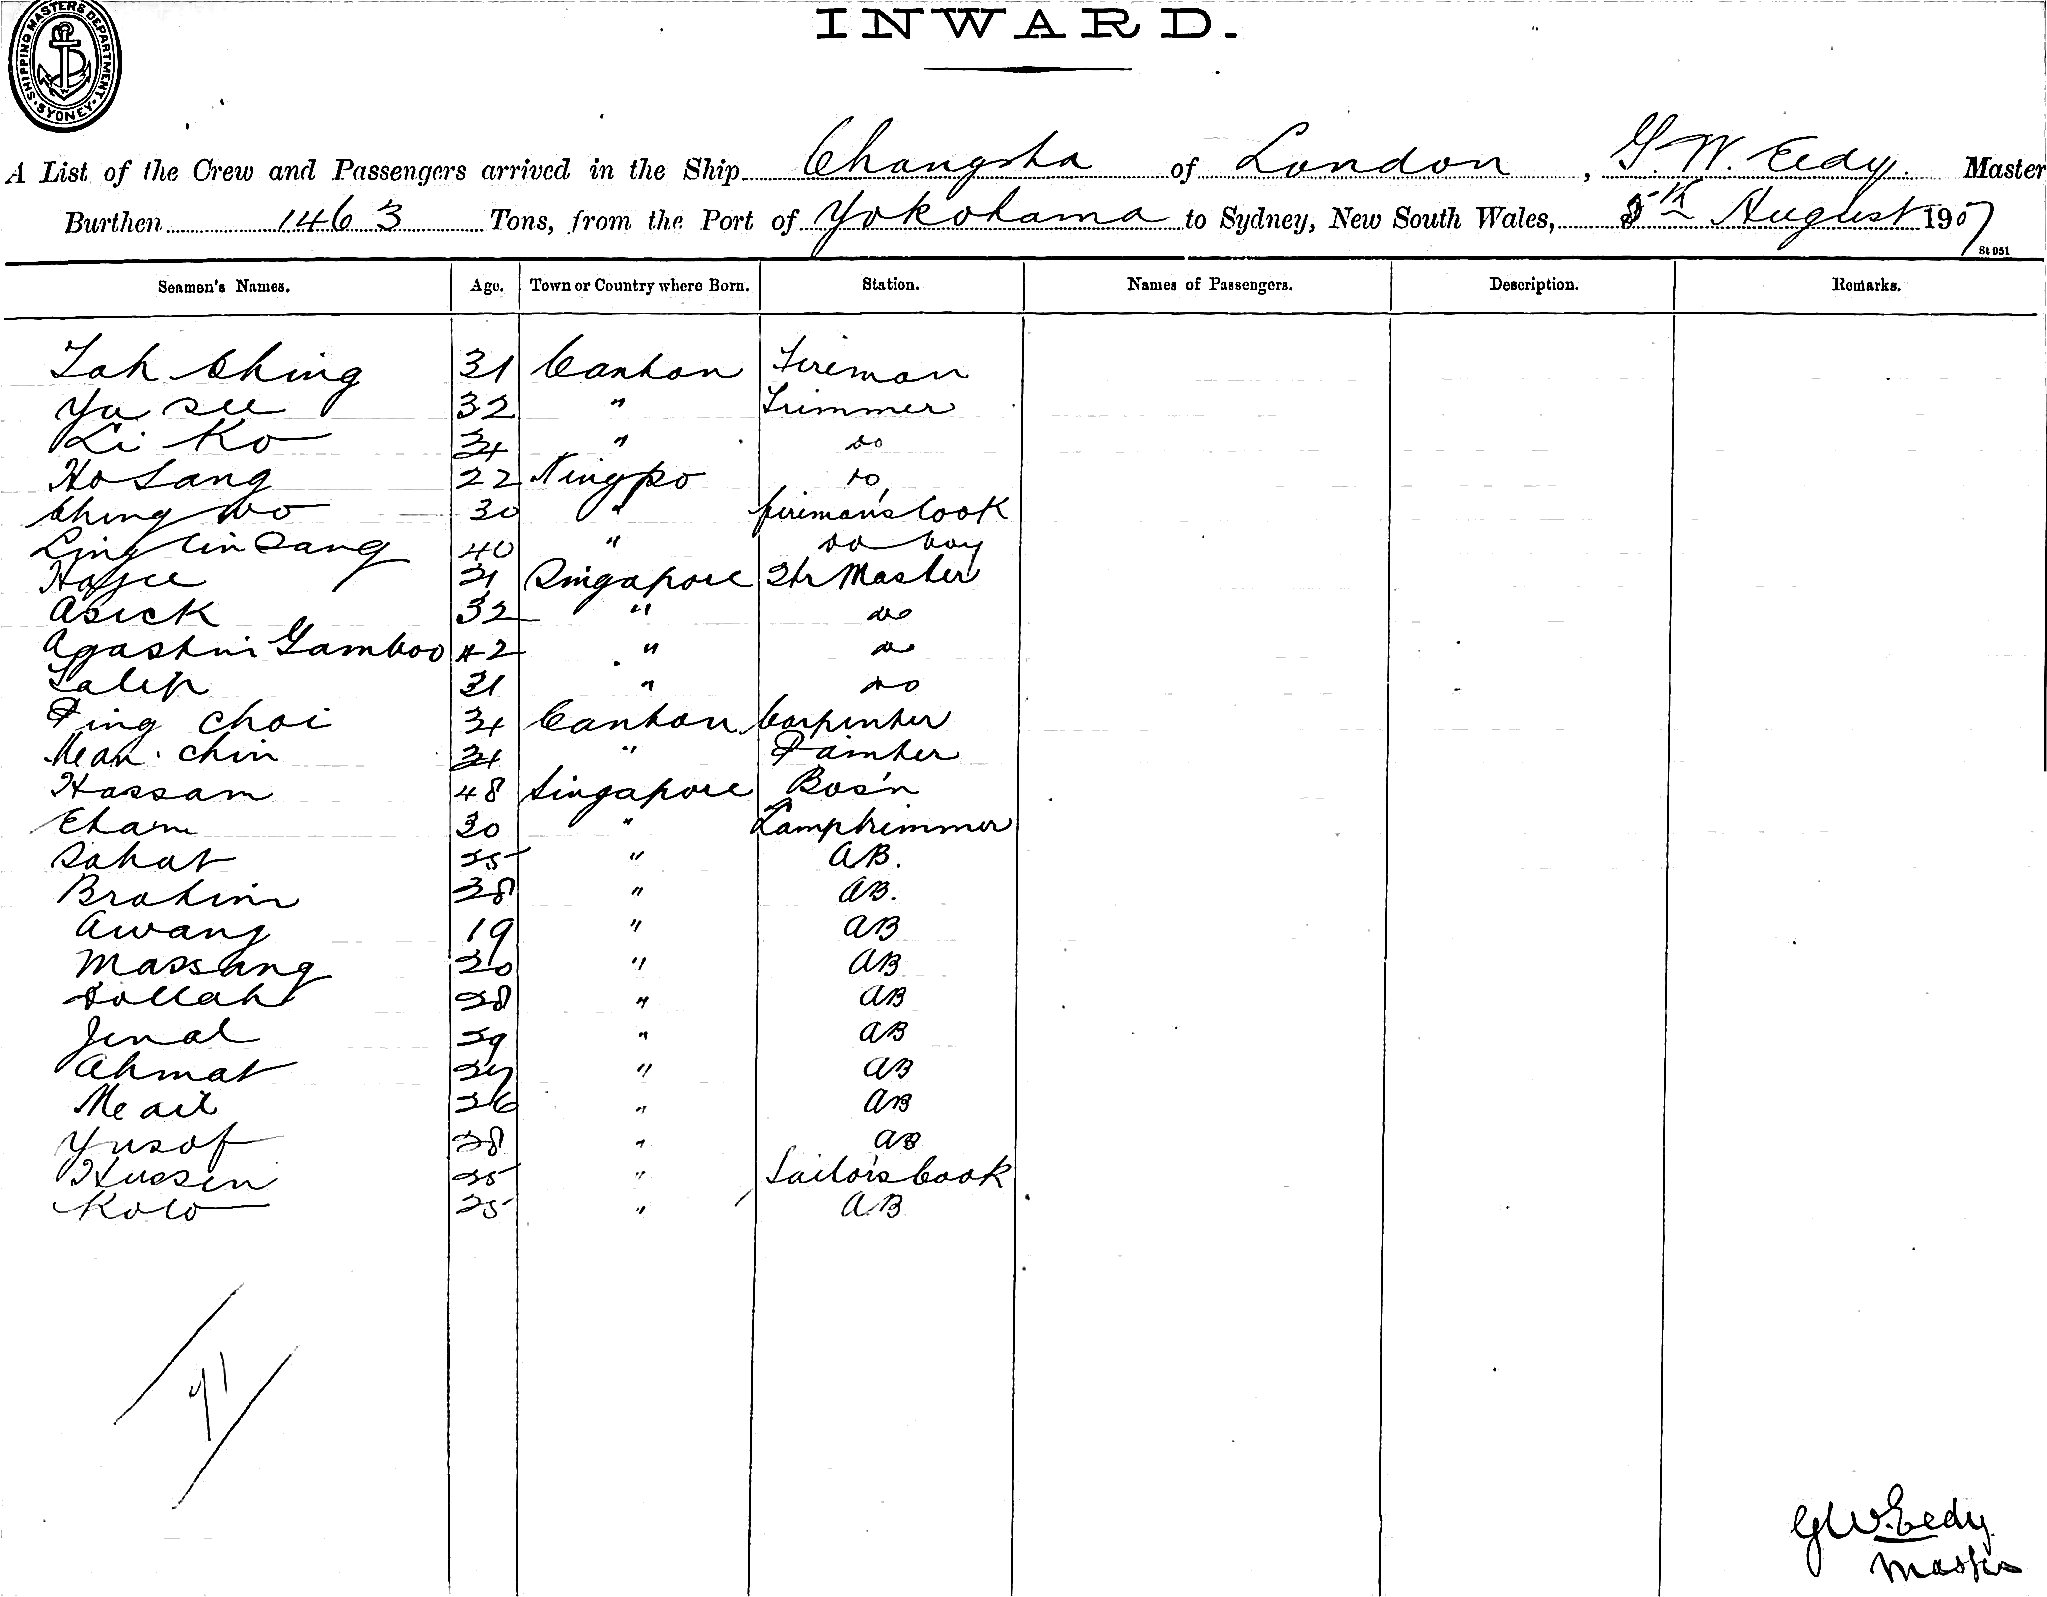 SHIPPING MASTERS DEPARTMENT · SYDNEY ·
INWARD.
A List of the Crew and Passengers arrived in the Ship Changsha of London, G. W. Eedy. Master
Burthen 1463 Tons, from the Port of Yokohama to Sydney, New South Wales, 5th August 1907
St 051
Seamen's Names. Age. Town or Country where Born. Station. Names of Passengers. Description. Remarks.
Tah Ching 31 Canton Fireman
Ya See 32 " Trimmer
Li Ko 34 " do
Ho Sang 22 Ningpo do
Ching Wo 30 " fireman's Cook
Ling Lin Sang 40 " do boy
31 Singapore Qtr Master
Asick 32 " do
Agastin Gamboo 42 " do
Salip 31 " do
Ping Choi 34 Canton Carpenter
Mean. Chin 34 " Painter
Hassam 48 Singapore Bos'n
Eham 30 " Lamptrimmer
Sahat 25 " AB.
Brahim 38 " AB.
Awang 19 " AB
Massang 20 " AB
Dollah 28 " AB
Jenal 29 " AB
Ahmat 27 " AB
Me ail 26 " AB
Yusof 28 " AB
Hussin 25 " Sailor's Cook
Kolo 25 " AB
71
GW. Eedy
Master